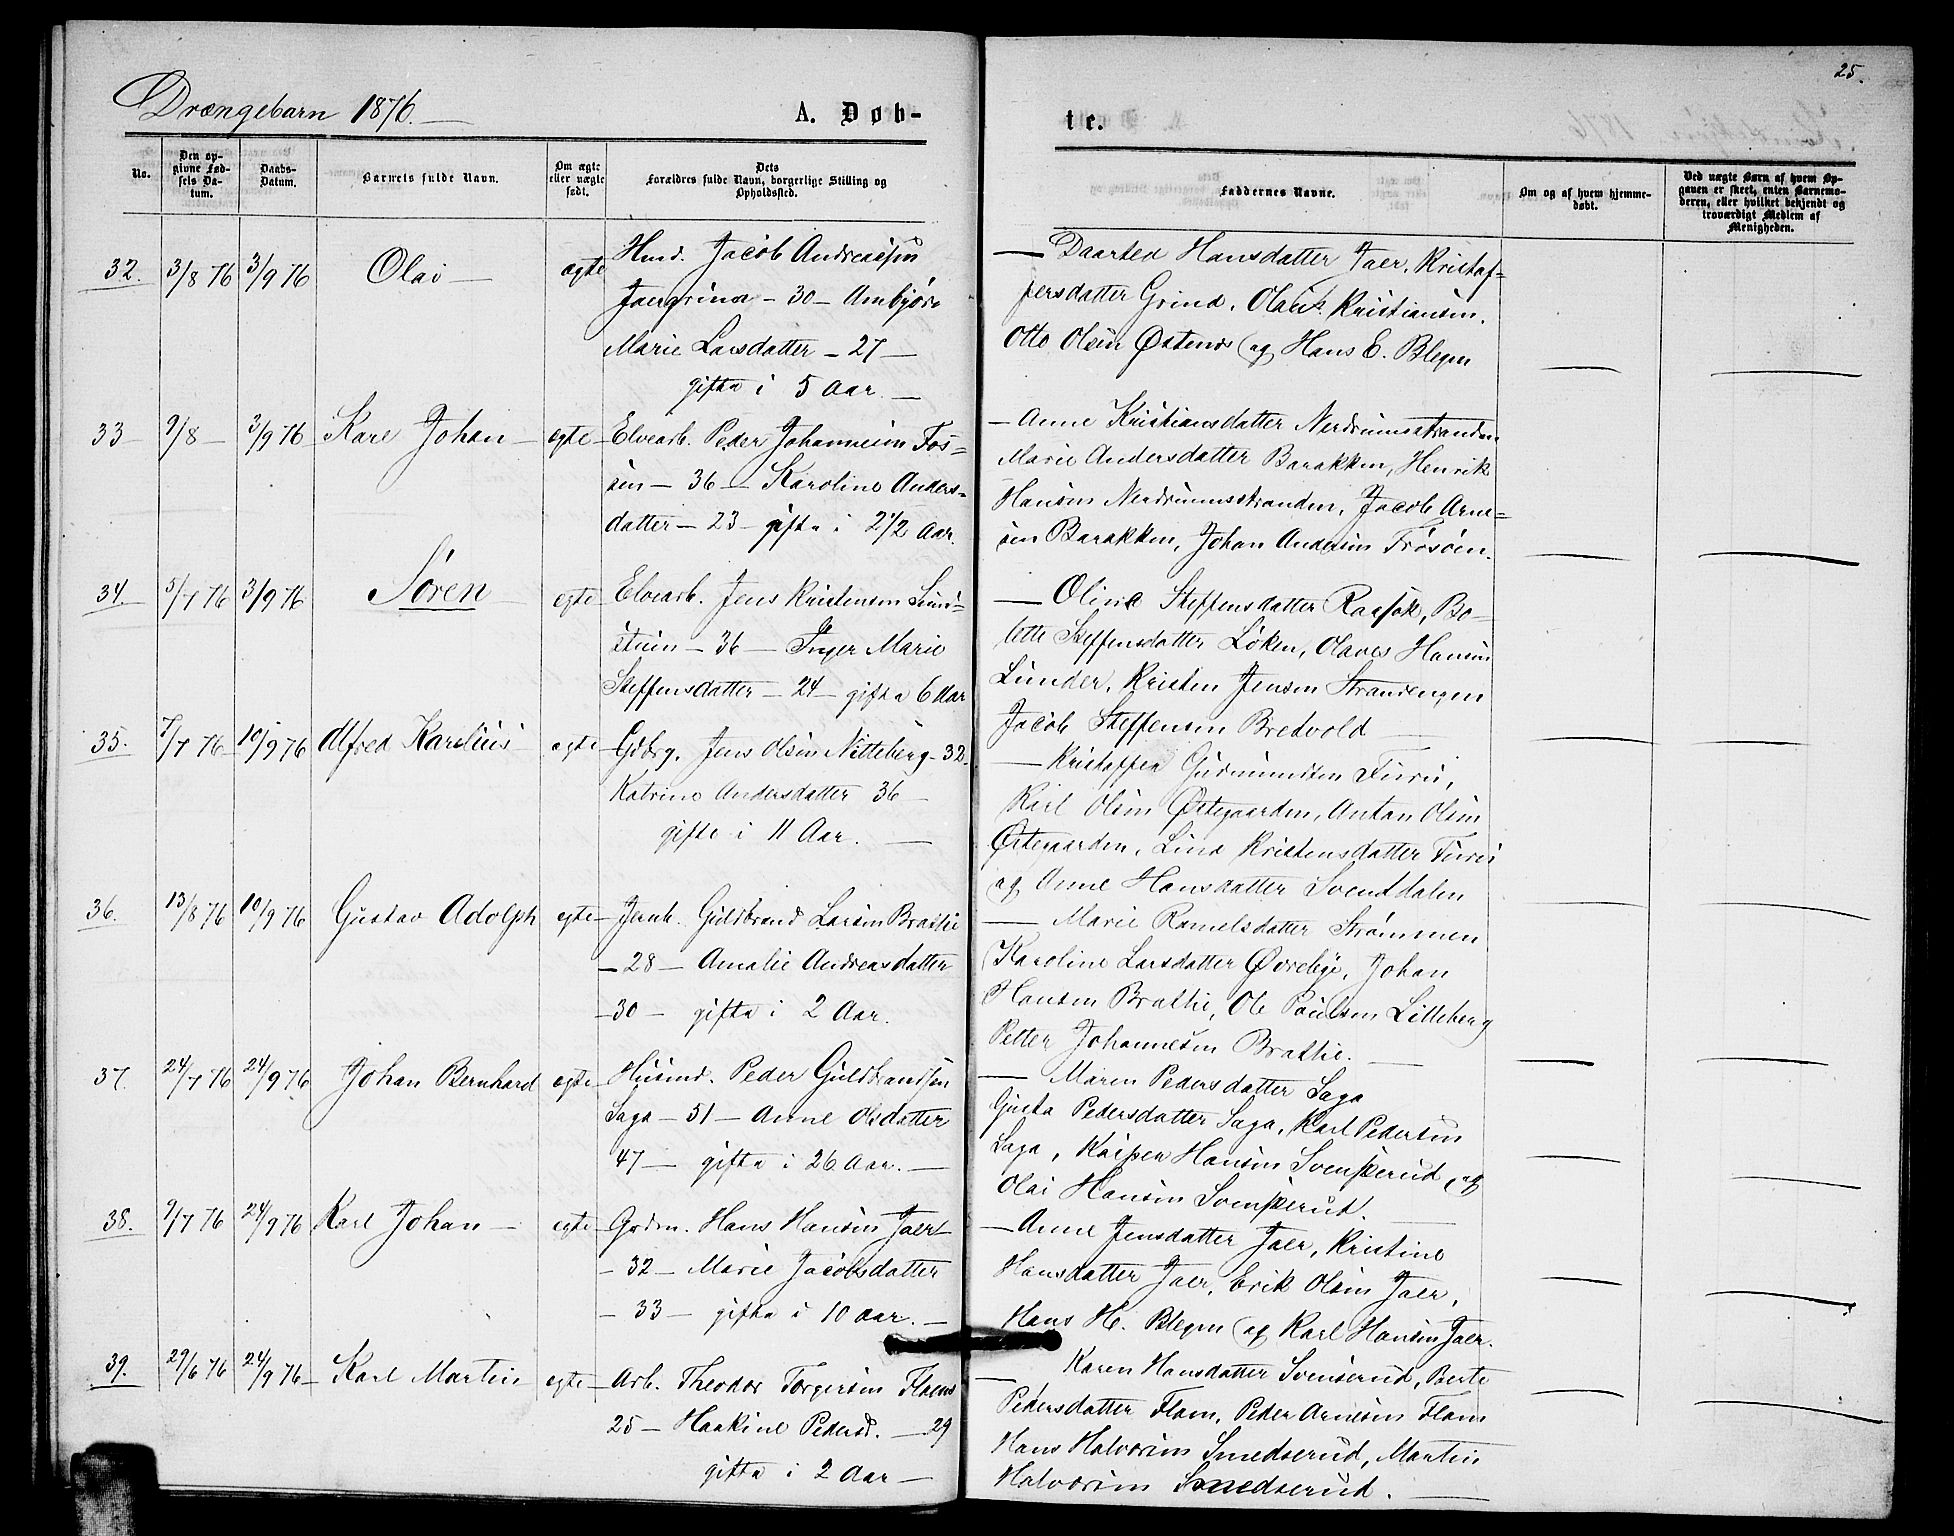 25.
Drængebarn 1876.
A. Døb-
te.
No.
Den op-
givne Fød-
sels Da-
tum.
Daabs-
Datum.
Barnets fulde Navn.
Om ægte
eller uægte
født.
Dets
Forældres fulde Navn, borgerlige Stilling og
Opholdssted.
Faddernes Navne.
Om og af hvem hjemme-
døbt.
Ved uægte Børn af hvem Op-
gaven er skeet, enten Barnemo-
deren, eller hvilket bekjendt og
troværdigt Medlem af
Menigheden.
32. 3/8 76 3/9 76 Olai — ægte
Husd. Jacob Andreassen
Jaergrina - 30 - Ambjør
Marie Larsdatter - 27 —
gifta i 5 Aar. —
— Daartea Hansdatter Jaer, Kristof-
fersdatter Grina, Olaus Kristiansen,
Otto Olsen Østenas og Hans E. Blegen
33 9/8 — 3/9 76 Karl Johan — egte
Elvearb. Peder Johannesen Fos-
sen - 36 - Karoline Anders-
datter - 23 - gifta i 2 1/2 Aar.
— Anne Kristiansdatter Nerdrumsstranden
Marie Andersdatter Barakken, Henrik
Hansen Nerdrumsstranden, Jacob Arne-
sen Barakken, Johan Andersen Frøsøen.
34. 5/7 76 3/9 76 Søren egte
Elvearb. Jens Kristensen
- 36 — Inger Marie
Steffensdatter - 24 - gifta 6 Aar
— Oline Steffensdatter Raasok, Bo-
lette Steffensdatter Løken, Olaves Hansen
Lunder, Kristen Jensen Strandengen
Jacob Steffensen Bredvold —
35. 7/7 76 10/9 76 Alfred Karelius egte
Gdbrg. Jens Olsen Nitteberg - 32.
Katrine Andersdatter 36 —
gifte i 11 Aar. —
— Kristoffer Gudmundsen Furu,
Karl Olsen Østegaarden, Anton Olsen
Østegaarden, Lina Kristensdatter Furu
og Anne Hansdatter Svenddalen
36. 13/8 76 10/9 76 Gustav Adolph egte
Jernb. Guldbrand Larsen Brathe
- 28 - Amalie Andreasdatter
- 30 - gifta i 2 Aar.
— Marie Ramelsdatter Strømmen
Karoline Larsdatter Øvrebye, Johan
Hansen Brathe, Ole Paulsen Litteberg
Petter Johannesen Brathe. —
37. 24/7 76 24/9 76 Johan Bernhard egte
Husmd. Peder Guldbrandsen
Saga - 51 - Anne Olsdatter
47 - gifta i 26 Aar. —
— Maren Pedersdatter Saga
Gusta Pedersdatter Saga, Karl Pedersen
Saga, Kasper Hansen Svenskerud, og
Olai Hansen Svenskerud.
38. 9/7 76 24/9 76 Karl Johan — egte
Grdm. Hans Hansen Jaer
- 32 - Marie Jacobsdatter
- 33 - gifta i 10 aar. —
— Anne Jensdatter Jaer, Kristine
Hansdatter Jaer, Erik Olsen Jaer,
Hans H. Blegen og Karl Hansen Jaer.
39. 29/6 76 24/9 76 Karl Martin egte
Arb. Theodor Torgersen Flaen
25 - Haakine Pedersd. - 29
gifta i 2 Aar —
— Karen Hansdatter Svenserud, Berte
Pedersdatter Flam, Peder Arnesen Flam
Hans Halvorsen Smedserud, Martin
Halvorsen Smedserud. —